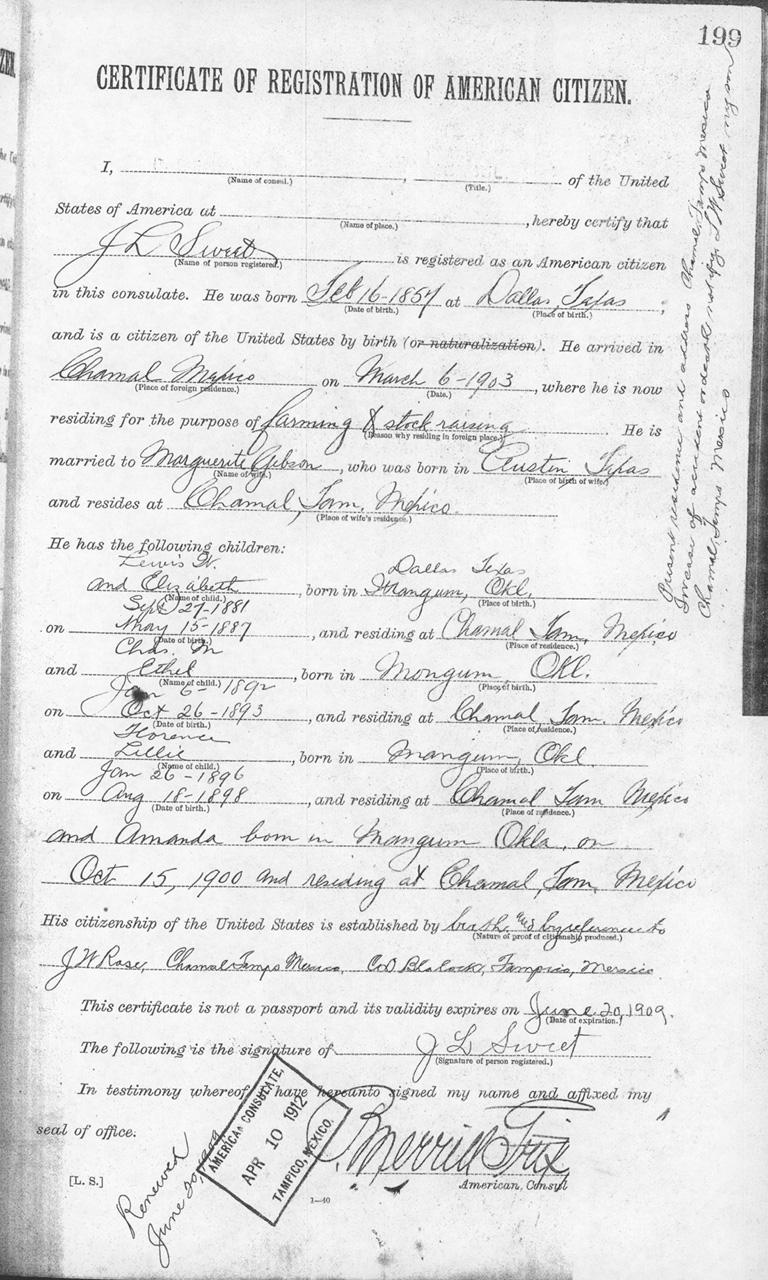 199
CERTIFICATE OF REGISTRATION OF AMERICAN CITIZEN.
I, , of the United
(Name of consul.) (Title.)
States of America at , hereby certify that
(Name of place.)
J L Sweet is registered as an American citizen
(Name of person registered.)
in this consulate. He was born Feb 16-1857 at Dallas, Texas ;
(Date of birth.) (Place of birth.)
and is a citizen of the United States by birth (or naturalization). He arrived in
Chamal Mexico on March 6-1903, where he is now
(Place of foreign residence.) (Date.)
residing for the purpose of farming & stock raising. He is
(Reason why residing in foreign place.)
married to Marguerite Gibson, who was born in Austin Texas
(Name of wife.) (Place of birth of wife.)
and resides at Chamal, Tam. Mexico.
(Place of wife's residence.)
He has the following children:
Lewis W. Dallas Texas
and Elizabeth, born in Mangum, Okl,
(Name of child.) (Place of birth.)
Sept 27-1881
on May 15-1887, and residing at Chamal Tam, Mexico
(Date of birth.) (Place of residence.)
Chas. M
and Ethel, born in Mongum, Okl.
(Name of child.) (Place of birth.)
Jan 6-1892
on Oct 26-1893, and residing at Chamal, Tam. Mexico
(Date of birth.) (Place of residence.)
Florence
and Lillie, born in Mangum, Okl
(Name of child.) (Place of birth.)
Jan 26-1896
on Aug 18-1898, and residing at Chamal Tam Mexico
(Date of birth.) (Place of residence.)
and Amanda born in Mangum Okla, on
Oct 15, 1900 and residing at Chamal, Tam, Mexico
His citizenship of the United States is established by birth, and by reference to
(Nature of proof of citizenship produced.)
J W Rose, Chamal Tamps Mexico, C D Blalock, Tampico, Mexico
This certificate is not a passport and its validity expires on June 20, 1909.
(Date of expiration.)
The following is the signature of J L Sweet
(Signature of person registered.)
In testimony whereof I have hereunto signed my name and affixed my
seal of office.
AMERICAN CONSULATE,
APR 10 1912
TAMPICO, MEXICO.
[L. S.]
American, Consul
1-40
Renewed
June 20, 1909
Present residence and address Chamal, Tamps Mexico
In case of accident or death notify L W Sweet, my son
Chamal, Tamps Mexico